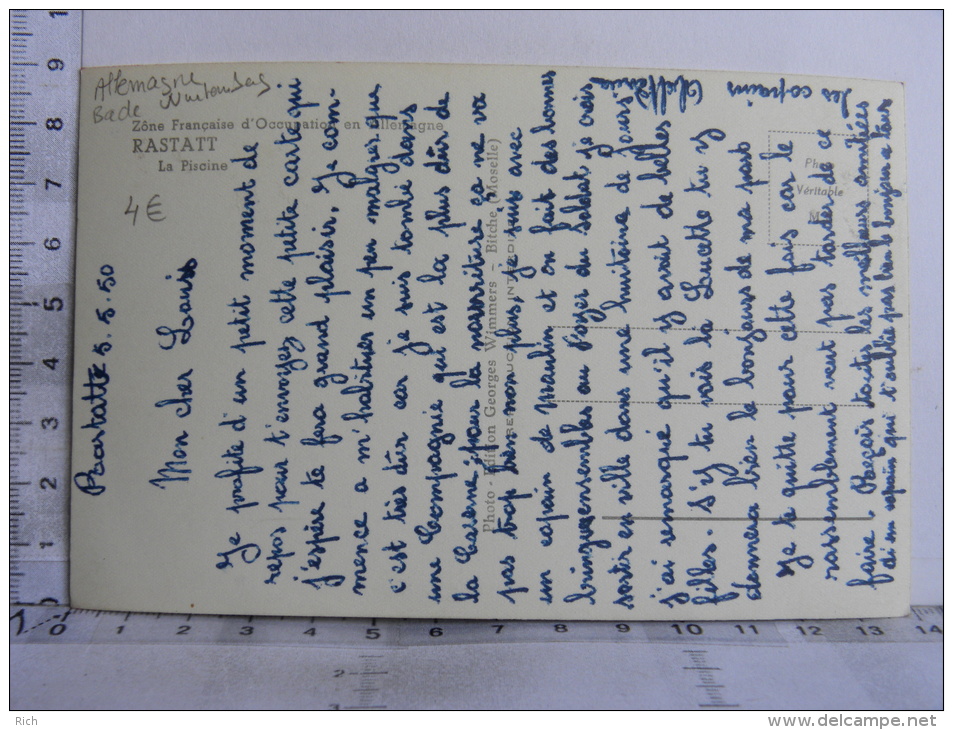 Allemagne
Bade Wurtemberg
Zône Française d'Occupation en Allemagne
RASTATT
La Piscine
4€
Photo - Edition Georges Wimmers - Bitche (Moselle)
REPRODUCTION INTERDITE
Photo
Véritable
Rastatt 5.5.50
Mon cher Louis
Je profite d'un petit moment de
repos pour t'envoyez cette petite carte qui
j'espère te fera grand plaisir. Je com-
mence a m'habituer un peu malgrer que
c'est très dûr car je suis tombé dans
une Compagnie qui est la plus dûr de
la Caserne, pour la nourriture ça ne va
pas trop bien non plus, je suis avec
un copain de moulin et on fait des bonnes
ensembles au Foyer du Soldat je crois
sortir en ville dans une huitaine de jours
j'ai remarqué qu'il y avait de belles
filles. S'y tu vois la Lucette tu y
donnera bien le bonjour de ma part
Je te quitte pour cette fois car le
rassemblement veut pas tarder de ce
faire. Reçois toutes les meilleurs amitiées
d'un copain qui t'oublie pas bien le bonjour a tous
les copains